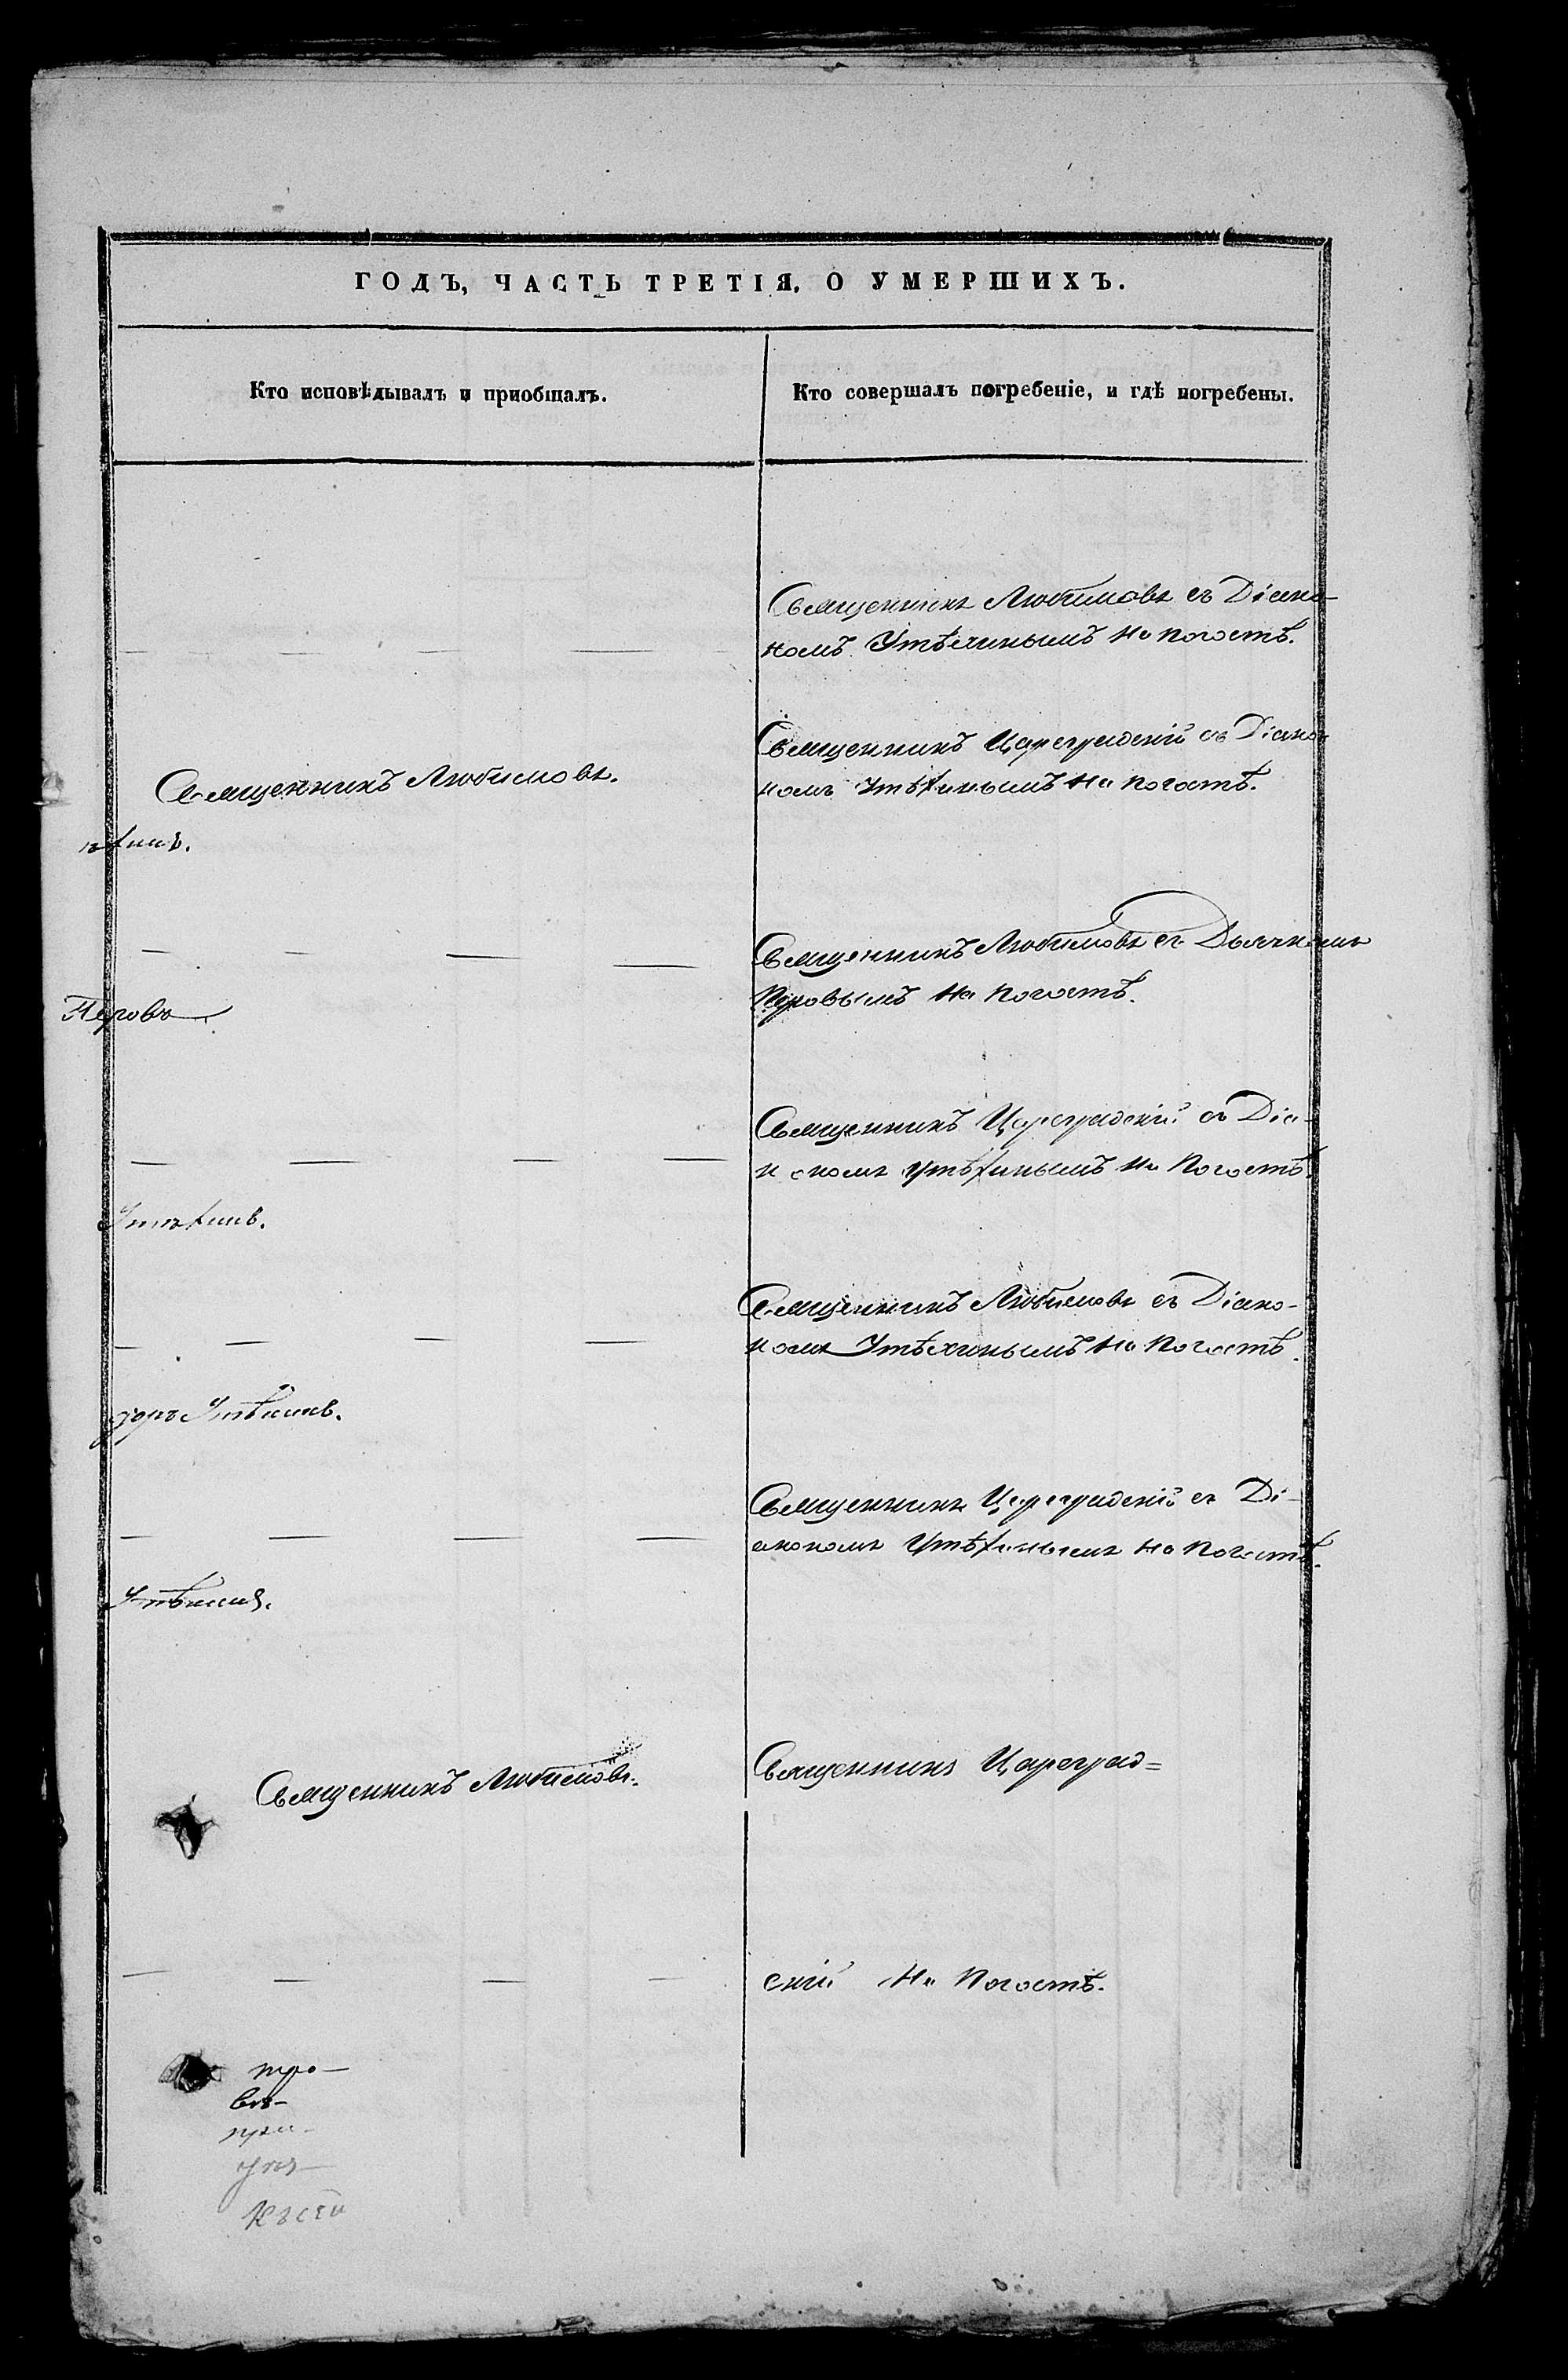 ГОДЪ, ЧАСТЬ ТРЕТІЯ, О УМЕРШИХЪ.
Кто исповѣдывалъ и приобщалъ.
Кто совершалъ погребеніе, и гдѣ погребены.
Священникъ Любимовъ съ Діако-
номъ Утѣхинымъ на погостѣ.
Священникъ Любимовъ.
Священникъ Цареградскій съ Діако-
номъ Утѣхинымъ на погостѣ.
Священникъ Любимовъ съ Дьячкомъ
Перовымъ на погостѣ.
Перовъ.
Священникъ Цареградскій съ Діа-
кономъ Утѣхинымъ на Погостѣ.
Утѣхинъ.
Священникъ Любимовъ съ Діако-
номъ Утѣхинымъ на Погостѣ.
Утѣхинъ.
Священникъ Цареградскій съ Ді-
акономъ Утѣхинымъ на Погостѣ.
Утѣхинъ.
Священникъ Любимовъ.
Священникъ Цареград=
скій на Погостѣ.